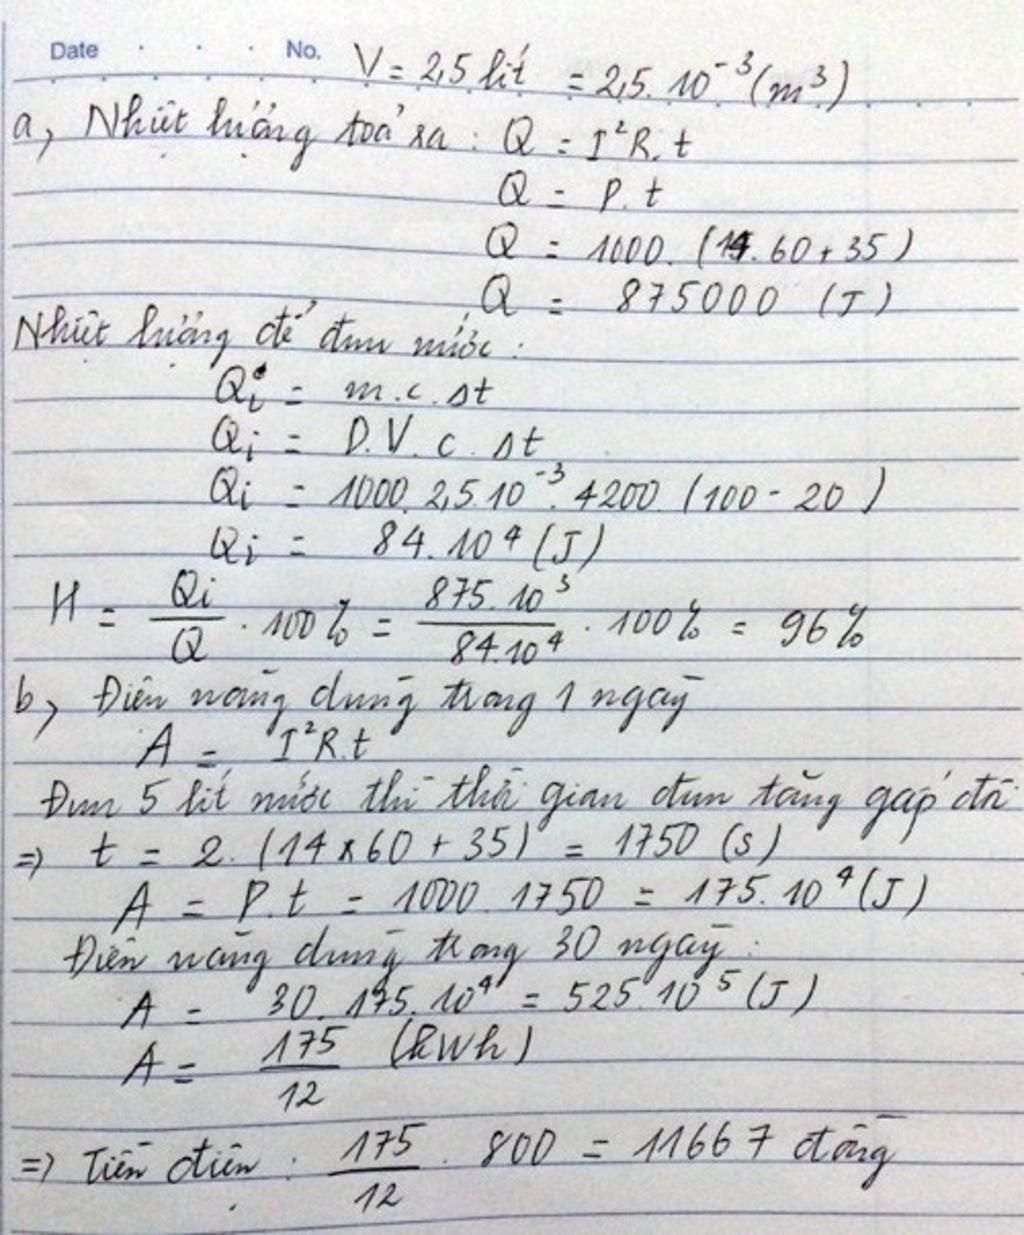 Date No. V = 2,5 lít = 2,5. 10⁻³ (m³)
a, Nhiệt lượng toả ra : Q = I²R.t
Q = P. t
Q = 1000. (14. 60 + 35)
Q = 875000 (J)
Nhiệt lượng để đun nước :
Qi = m. c. Δt
Qi = D. V. c. Δt
Qi = 1000. 2,5. 10⁻³. 4200. (100 - 20)
Qi = 84. 10⁴ (J)
H = Qi/Q . 100% = 875. 10³/84. 10⁴ . 100% = 96%
b, Điện năng dùng trong 1 ngày
A = I²R.t
Đun 5 lít nước thì thời gian đun tăng gấp đôi
=> t = 2. (14 x 60 + 35) = 1750 (s)
A = P. t = 1000. 1750 = 175. 10⁴ (J)
Điện năng dùng trong 30 ngày :
A = 30. 175. 10⁴ = 525. 10⁵ (J)
A = 175/12 (kWh)
=> Tiền điện : 175/12 . 800 = 11667 đồng